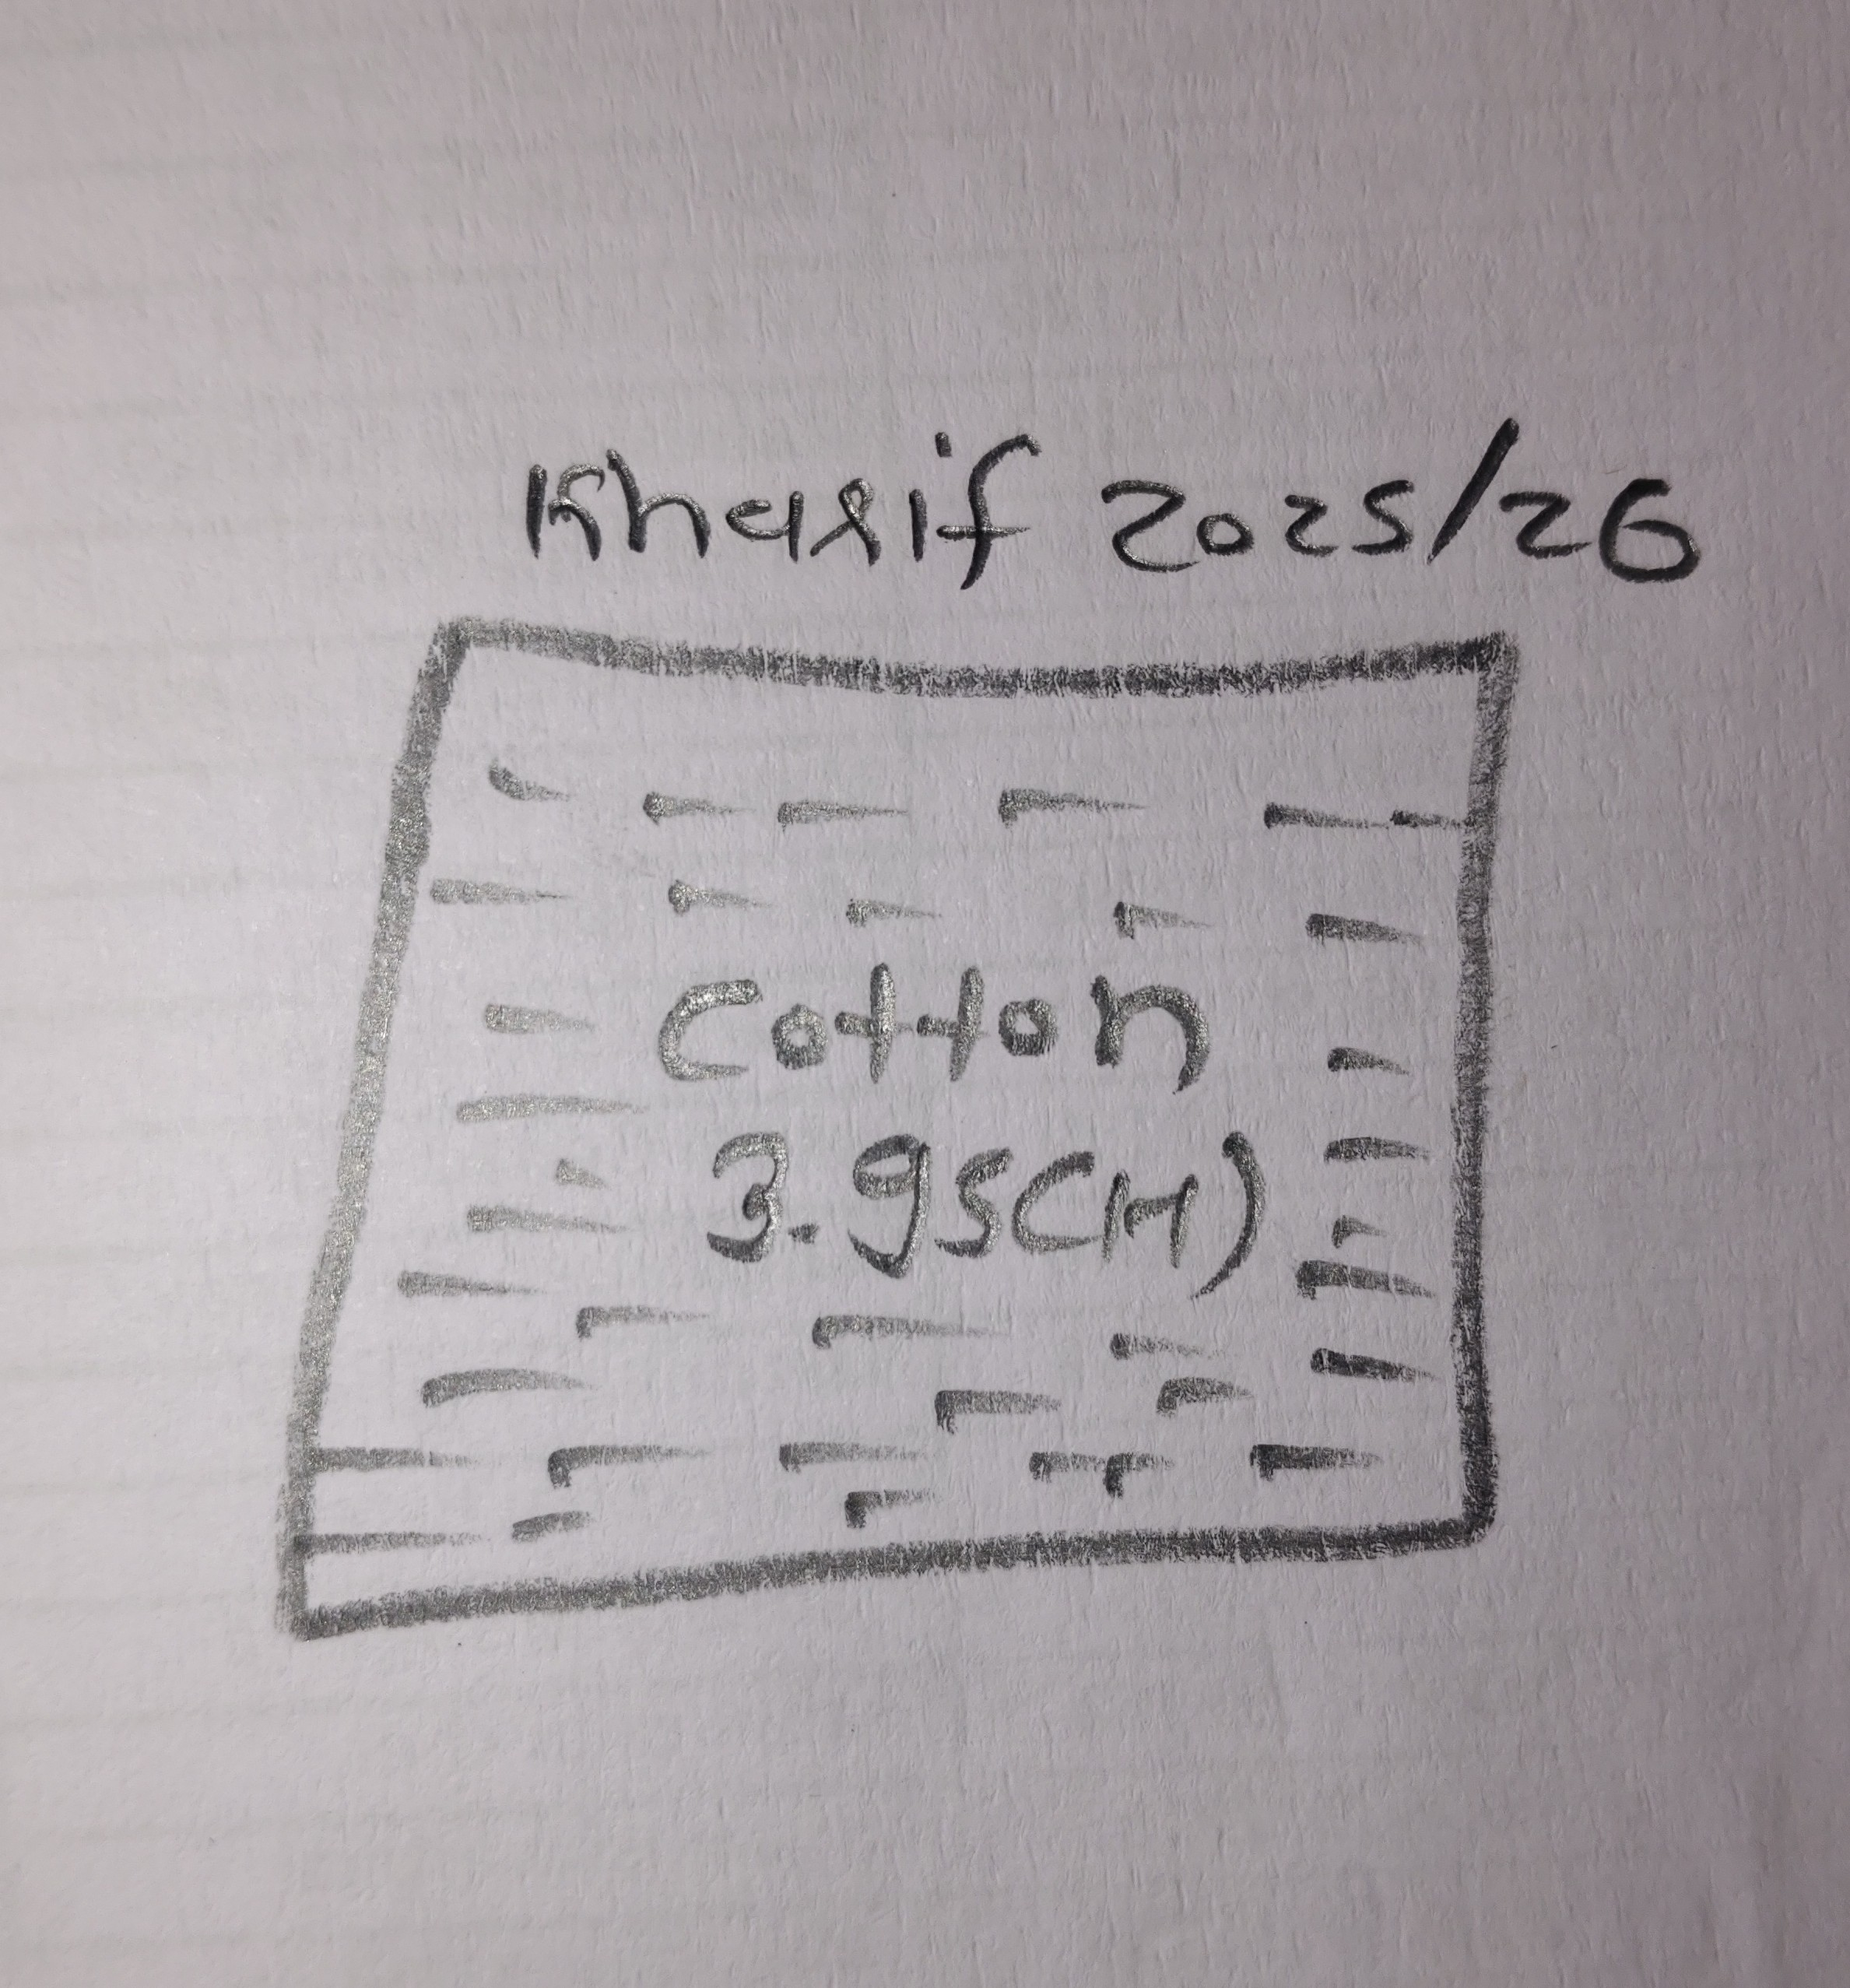 Kharif 2025/26
Cotton
3.95(H)